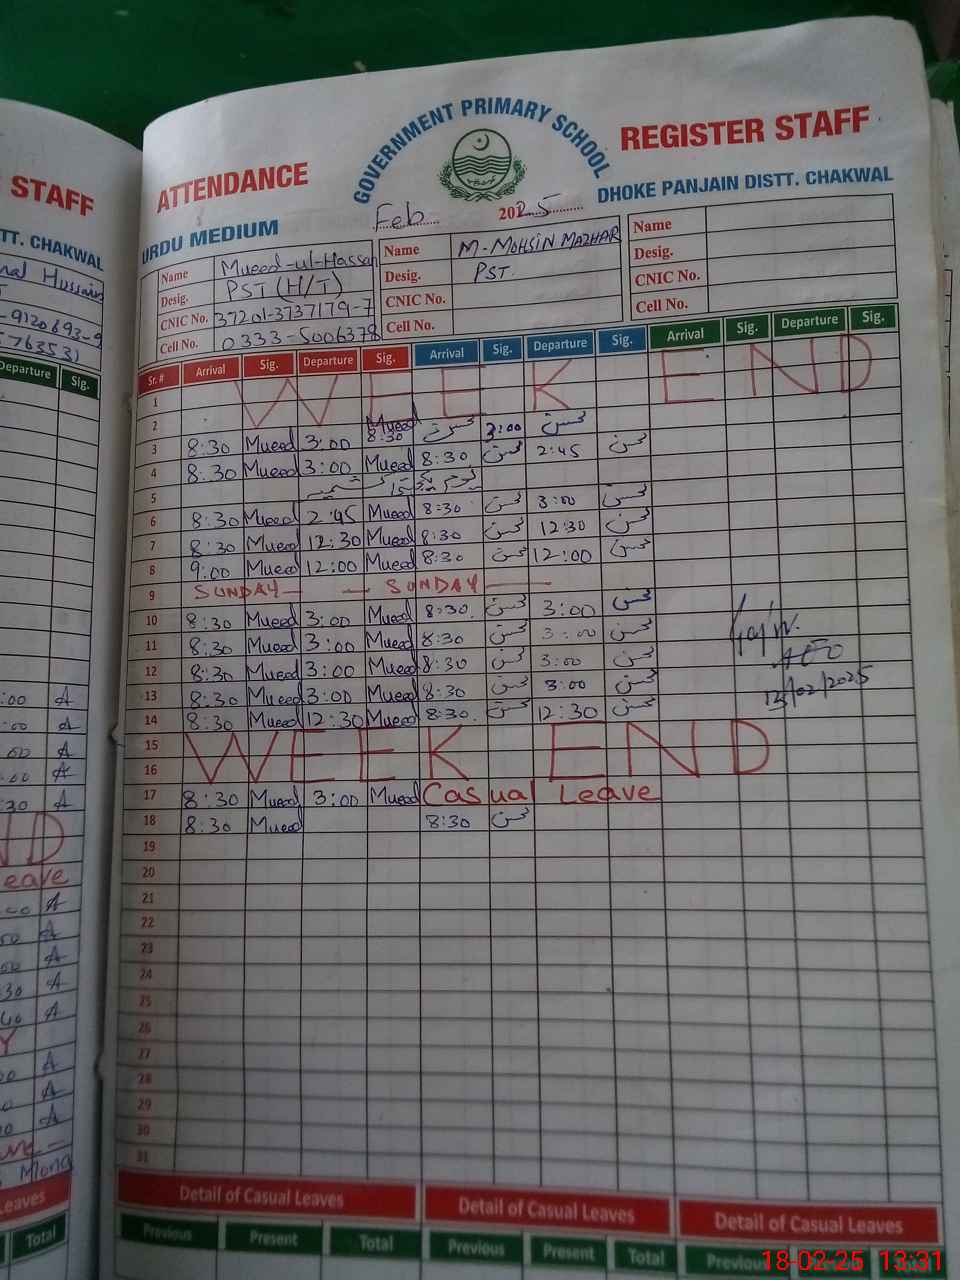 GOVERNMENT PRIMARY SCHOOL
ATTENDANCE REGISTER STAFF
URDU MEDIUM DHOKE PANJAIN DISTT. CHAKWAL
Feb 2025
Name Mueed-ul-Hassan Name M-MOHSIN MAZHAR Name
Desig. PST (H/T) Desig. PST. Desig.
CNIC No. 37201-3737179-7 CNIC No. CNIC No.
Cell No. 0333-5006378 Cell No. Cell No.
Sr.# Arrival Sig. Departure Sig. Arrival Sig. Departure Sig. Arrival Sig. Departure Sig.
1 WEEK END
2
3 8:30 Mueed 3:00 Mueed 8:30 محسن 3:00 محسن
4 8:30 Mueed 3:00 Mueed 8:30 محسن 2:45 محسن
5 یوم یکجہتی کشمیر
6 8:30 Mueed 2:45 Mueed 8:30 محسن 3:00 محسن
7 8:30 Mueed 12:30 Mueed 8:30 محسن 12:30 محسن
8 9:00 Mueed 12:00 Mueed 8:30 محسن 12:00 محسن
9 SUNDAY — — SUNDAY —
10 8:30 Mueed 3:00 Mueed 8:30 محسن 3:00 محسن
11 8:30 Mueed 3:00 Mueed 8:30 محسن 3:00 محسن
12 8:30 Mueed 3:00 Mueed 8:30 محسن 3:00 محسن
AEO
13 8:30 Mueed 3:00 Mueed 8:30 محسن 3:00 محسن
14 8:30 Mueed 12:30 Mueed 8:30 محسن 12:30 محسن
15 WEEK END
16
17 8:30 Mueed 3:00 Mueed Casual Leave
18 8:30 Mueed 8:30 محسن
19
20
21
22
23
24
25
26
27
28
29
30
31
Detail of Casual Leaves Detail of Casual Leaves Detail of Casual Leaves
Previous Present Total Previous Present Total
18-02-25 13:31
STAFF
TT. CHAKWAL
Departure Sig.
Total